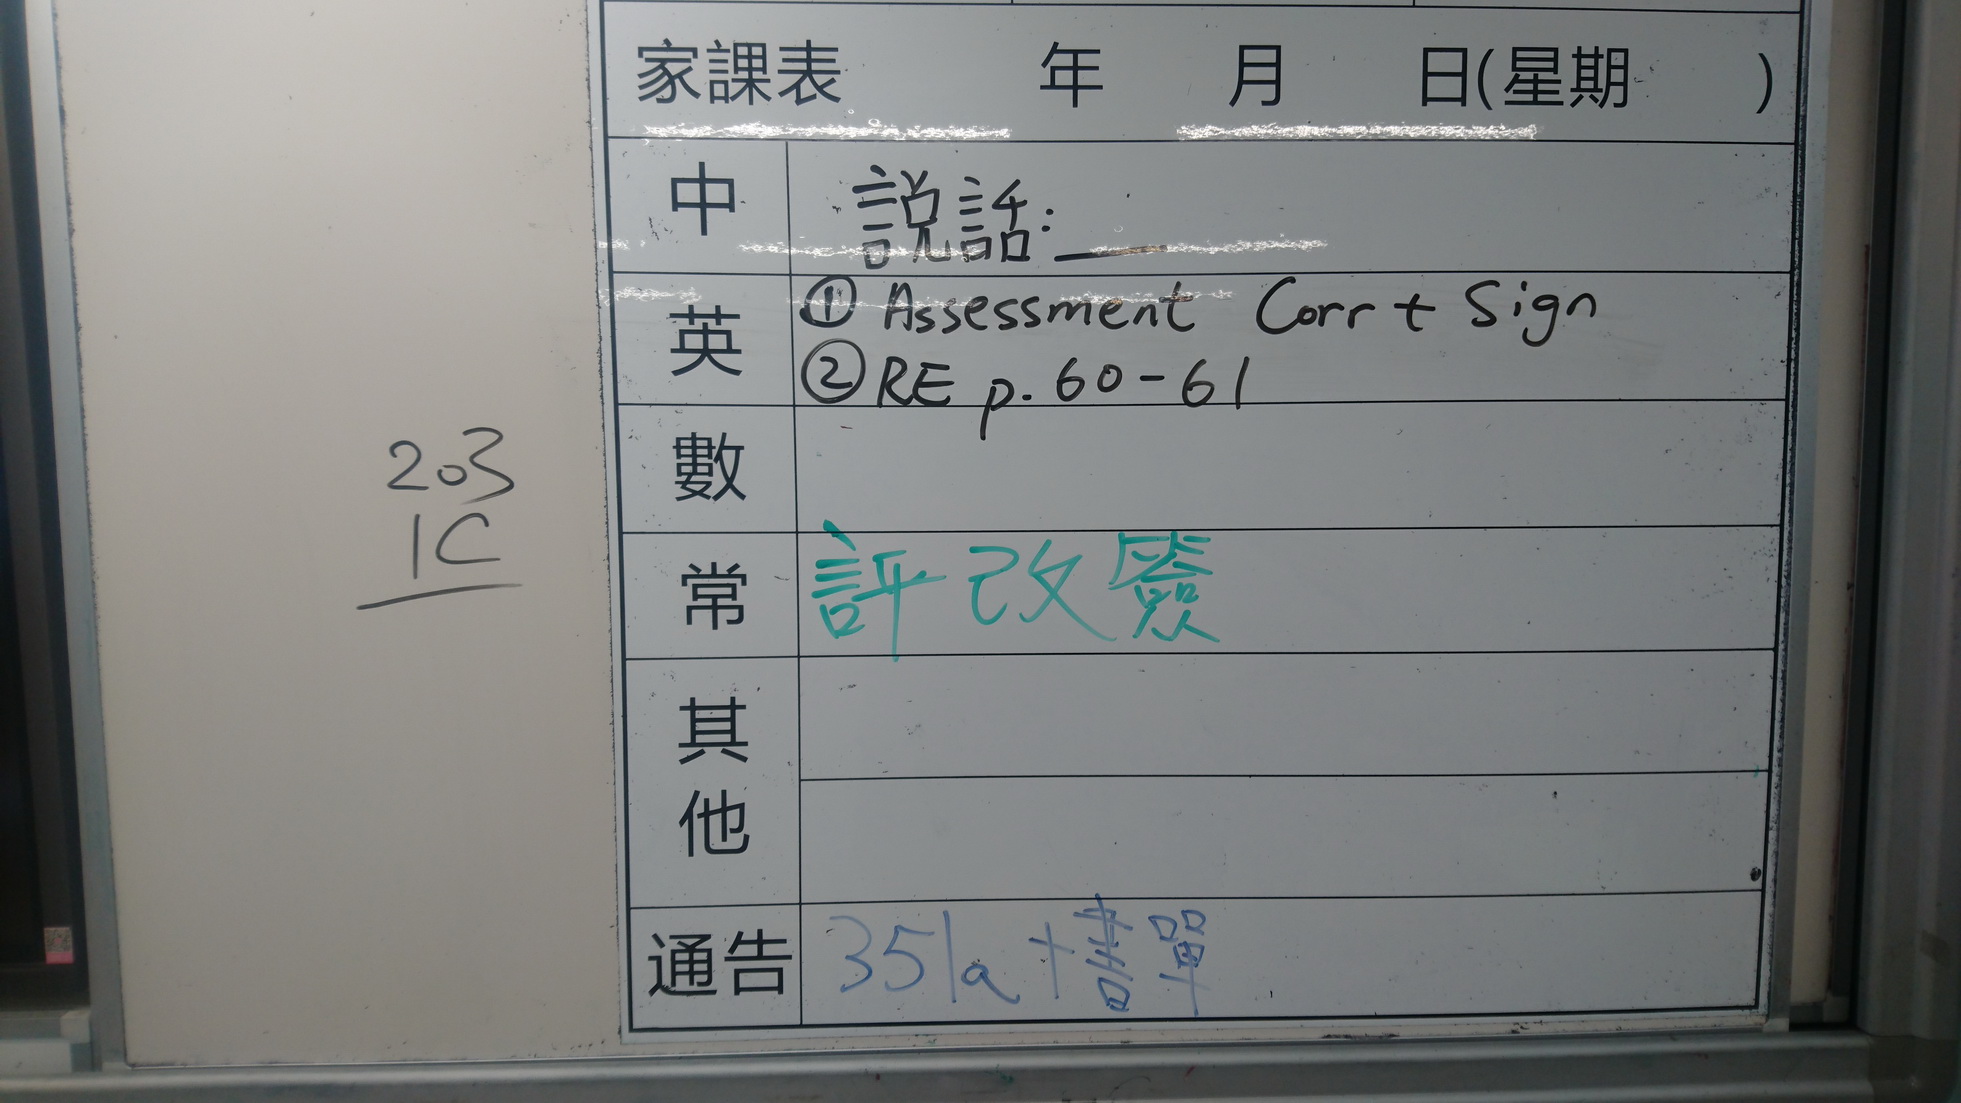 家課表 年 月 日(星期 )
中 説話:
英 ① Assessment Corr + Sign
② RE p. 60-61
數
常 評改簽
其他
通告 351a+書單
203
1C